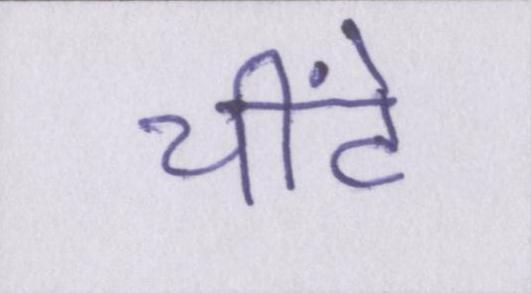 चींटे